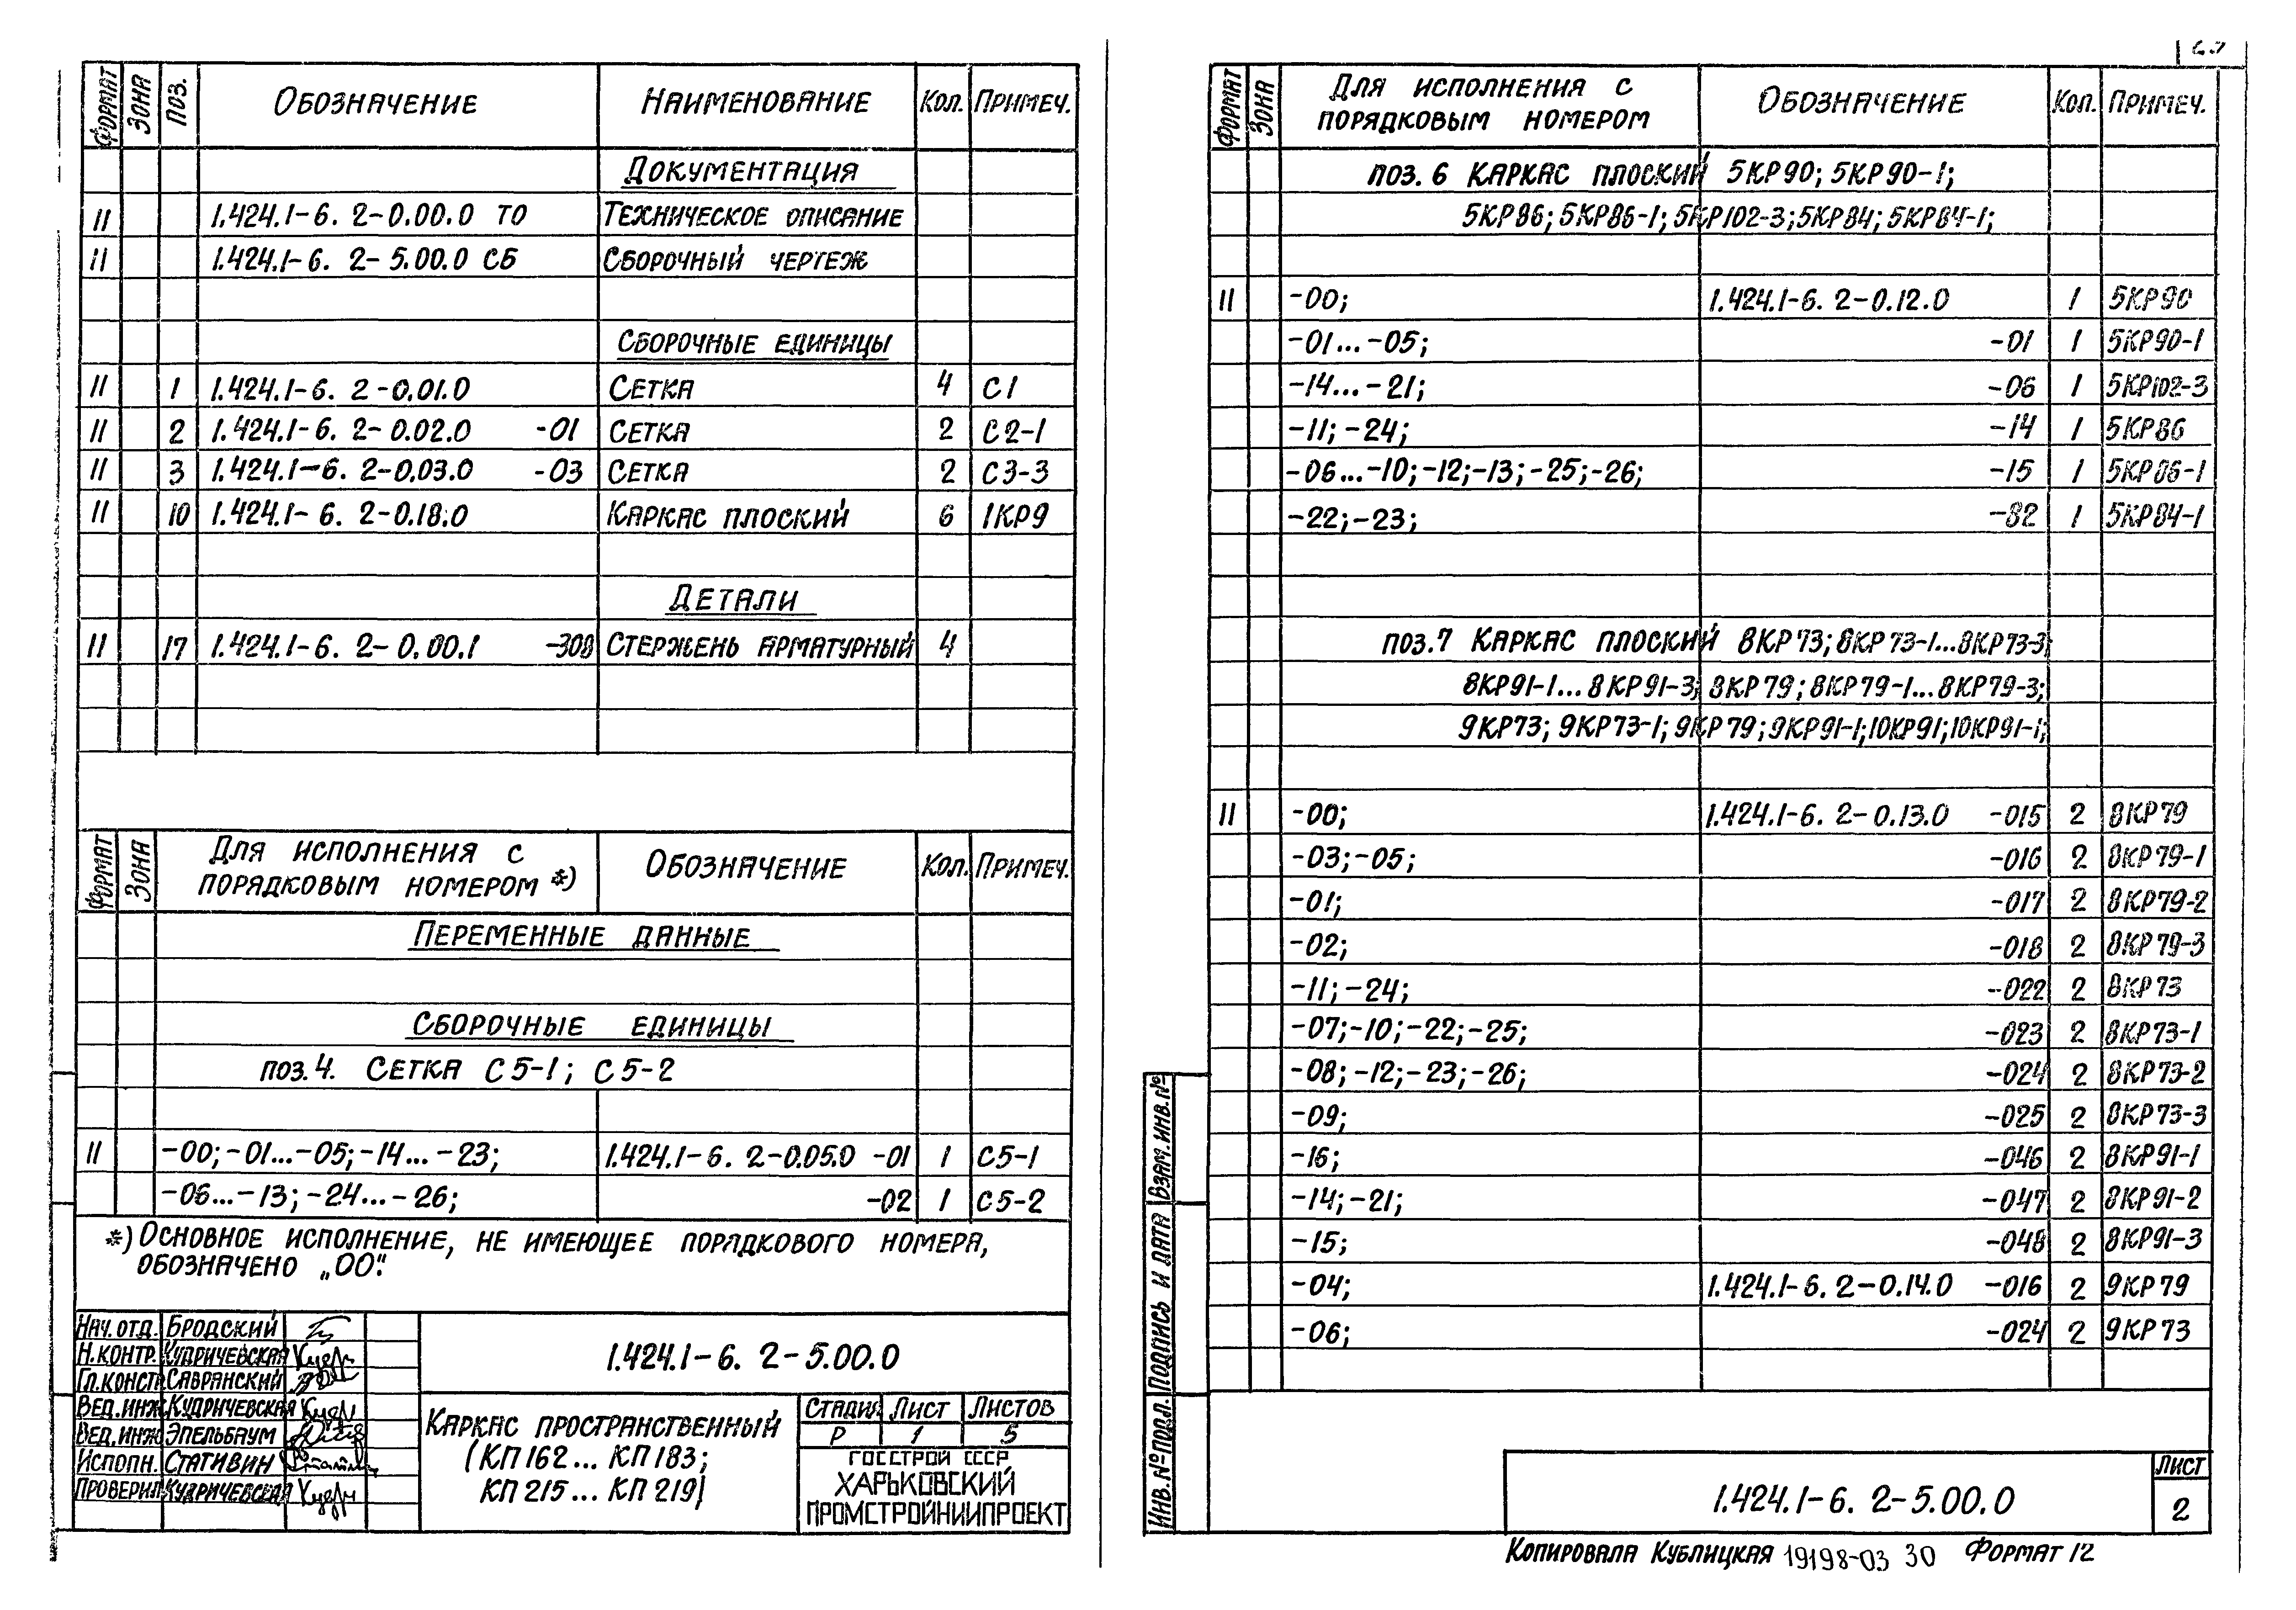 Формат Зона Поз. Обозначение Наименование Кол. Примеч.
Документация
11 1.424.1-6. 2-0.00.0 ТО Техническое описание
11 1.424.1-6. 2-5.00.0 СБ Сборочный чертеж
Сборочные единицы
11 1 1.424.1-6. 2-0.01.0 Сетка 4 С1
11 2 1.424.1-6. 2-0.02.0 -01 Сетка 2 С2-1
11 3 1.424.1-6. 2-0.03.0 -03 Сетка 2 С3-3
11 10 1.424.1-6. 2-0.18.0 Каркас плоский 6 1КР9
Детали
11 17 1.424.1-6. 2-0.00.1 -308 Стержень арматурный 4
Формат Зона Для исполнения с порядковым номером *) Обозначение Кол. Примеч.
Переменные данные
Сборочные единицы
поз.4. Сетка С5-1; С5-2
11 -00; -01...-05; -14...-23; 1.424.1-6. 2-0.05.0 -01 1 С5-1
-06...-13; -24...-26; -02 1 С5-2
*) Основное исполнение, не имеющее порядкового номера,
обозначено „00".
Нач. отд. Бродский
Н. контр. Кудричевская
Гл. констр Савранский
Вед. инж Кудричевская
Вед. инж Эпельбаум
Исполн. Стативин
Проверил Кудричевская
1.424.1-6. 2-5.00.0
Каркас пространственный
(КП162... КП183;
КП215... КП219)
Стадия Лист Листов
Р 1 5
Госстрой СССР
Харьковский
Промстройниипроект
Формат Зона Для исполнения с порядковым номером Обозначение Кол. Примеч.
поз. 6 Каркас плоский 5КР90; 5КР90-1;
5КР86; 5КР86-1; 5КР102-3; 5КР84; 5КР84-1;
11 -00; 1.424.1-6. 2-0.12.0 1 5КР90
-01...-05; -01 1 5КР90-1
-14...-21; -06 1 5КР102-3
-11; -24; -14 1 5КР86
-06...-10; -12; -13; -25; -26; -15 1 5КР86-1
-22; -23; -82 1 5КР84-1
поз.7 Каркас плоский 8КР73; 8КР73-1...8КР73-3;
8КР91-1...8КР91-3; 8КР79; 8КР79-1...8КР79-3;
9КР73; 9КР73-1; 9КР79; 9КР91-1; 10КР91; 10КР91-1;
11 -00; 1.424.1-6. 2-0.13.0 -015 2 8КР79
-03; -05; -016 2 8КР79-1
-01; -017 2 8КР79-2
-02; -018 2 8КР79-3
-11; -24; -022 2 8КР73
-07; -10; -22; -25; -023 2 8КР73-1
-08; -12; -23; -26; -024 2 8КР73-2
-09; -025 2 8КР73-3
-16; -046 2 8КР91-1
-14; -21; -047 2 8КР91-2
-15; -048 2 8КР91-3
-04; 1.424.1-6. 2-0.14.0 -016 2 9КР79
-06; -024 2 9КР73
Взам. инв. №
Подпись и дата
Инв. № подл.
1.424.1-6. 2-5.00.0
Лист
2
Копировала Кублицкая 19198-03 30 Формат 12